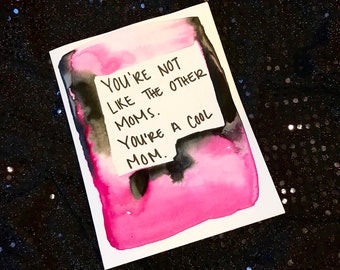 YOU'RE NOT
LIKE THE OTHER
MOMS.
YOU'RE A COOL
MOM.